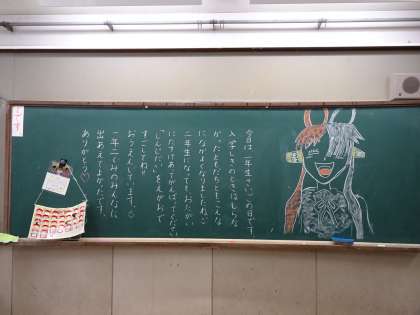 今日は一年生さいごの日です。
入学しきのときはしらな
かったともだちともこんな
になかよくなりましたね。
二年生になってもおたがい
にたすけあってがんばってください
「しんじだい」をえがおで
すごしてね!!
おうえんしています。
一年二くみのみんなに
出あえてよかったです。
ありがとう